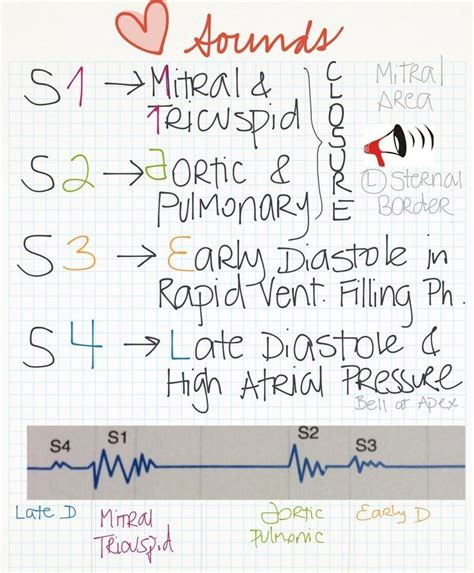 Sounds
S1 → Mitral &
Tricuspid
CLOSURE
Mitral
Area
S2 → Aortic &
Pulmonary
Ⓛ Sternal
Border
S3 → Early Diastole in
Rapid Vent. Filling Ph.
S4 → Late Diastole &
High Atrial Pressure
Bell at Apex
S4 S1 S2 S3
Late D Mitral Aortic Early D
Tricuspid Pulmonic